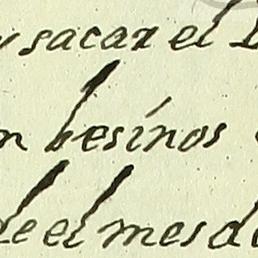 y sacar el
n besinos
de el mes de